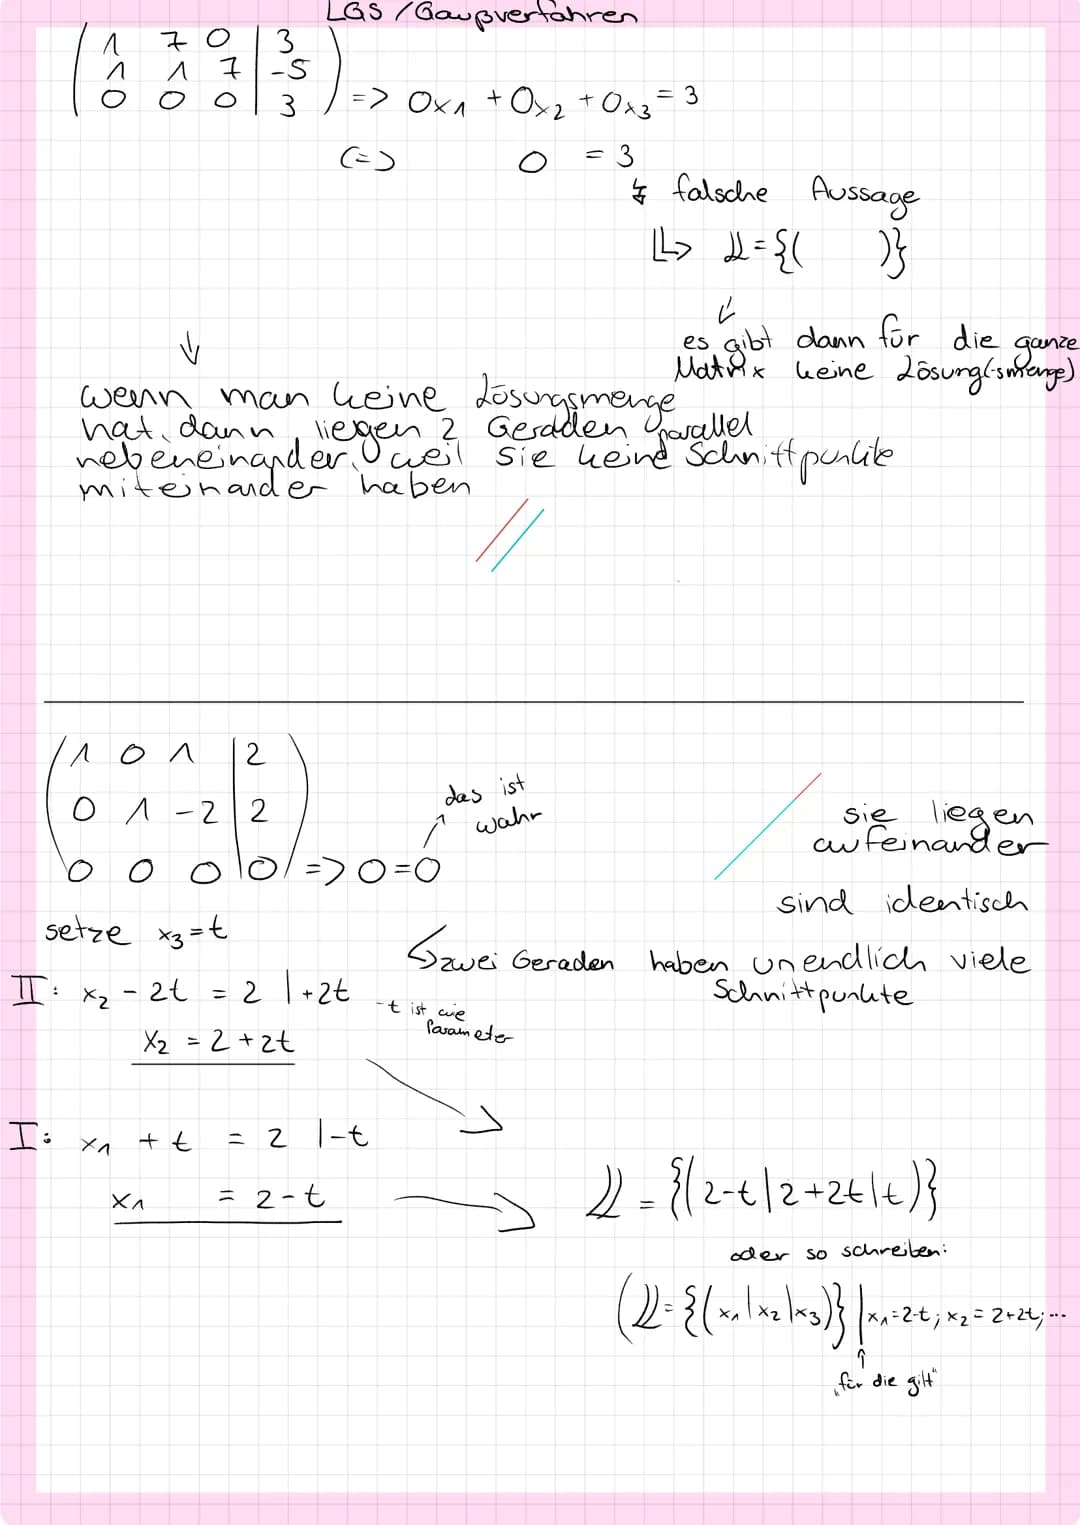 LGS / Gaußverfahren
( 1 7 0 | 3 )
( 1 1 7 | -5 )
( 0 0 0 | 3 ) => 0x₁ + 0x₂ + 0x₃ = 3
(=) 0 = 3
↯ falsche Aussage
↳ 𝕃 = {( )}
es gibt dann für die ganze
Matrix keine Lösung(smenge)
wenn man keine Lösungsmenge
hat, dann liegen 2 Geraden parallel
nebeneinander, weil sie keine Schnittpunkte
miteinander haben
( 1 0 1 | 2 )
( 0 1 -2 | 2 )
( 0 0 0 | 0 ) => 0=0
das ist
wahr
sie liegen
aufeinander
sind identisch
↳ zwei Geraden haben unendlich viele
Schnittpunkte
setze x₃ = t
II: x₂ - 2t = 2 | +2t
x₂ = 2 + 2t
-t ist wie
Parameter
I: x₁ + t = 2 | -t
x₁ = 2 - t
𝕃 = {(2-t | 2+2t | t)}
oder so schreiben:
(𝕃 = {(x₁ | x₂ | x₃)} | x₁ = 2-t ; x₂ = 2+2t; ...
„für die gilt"